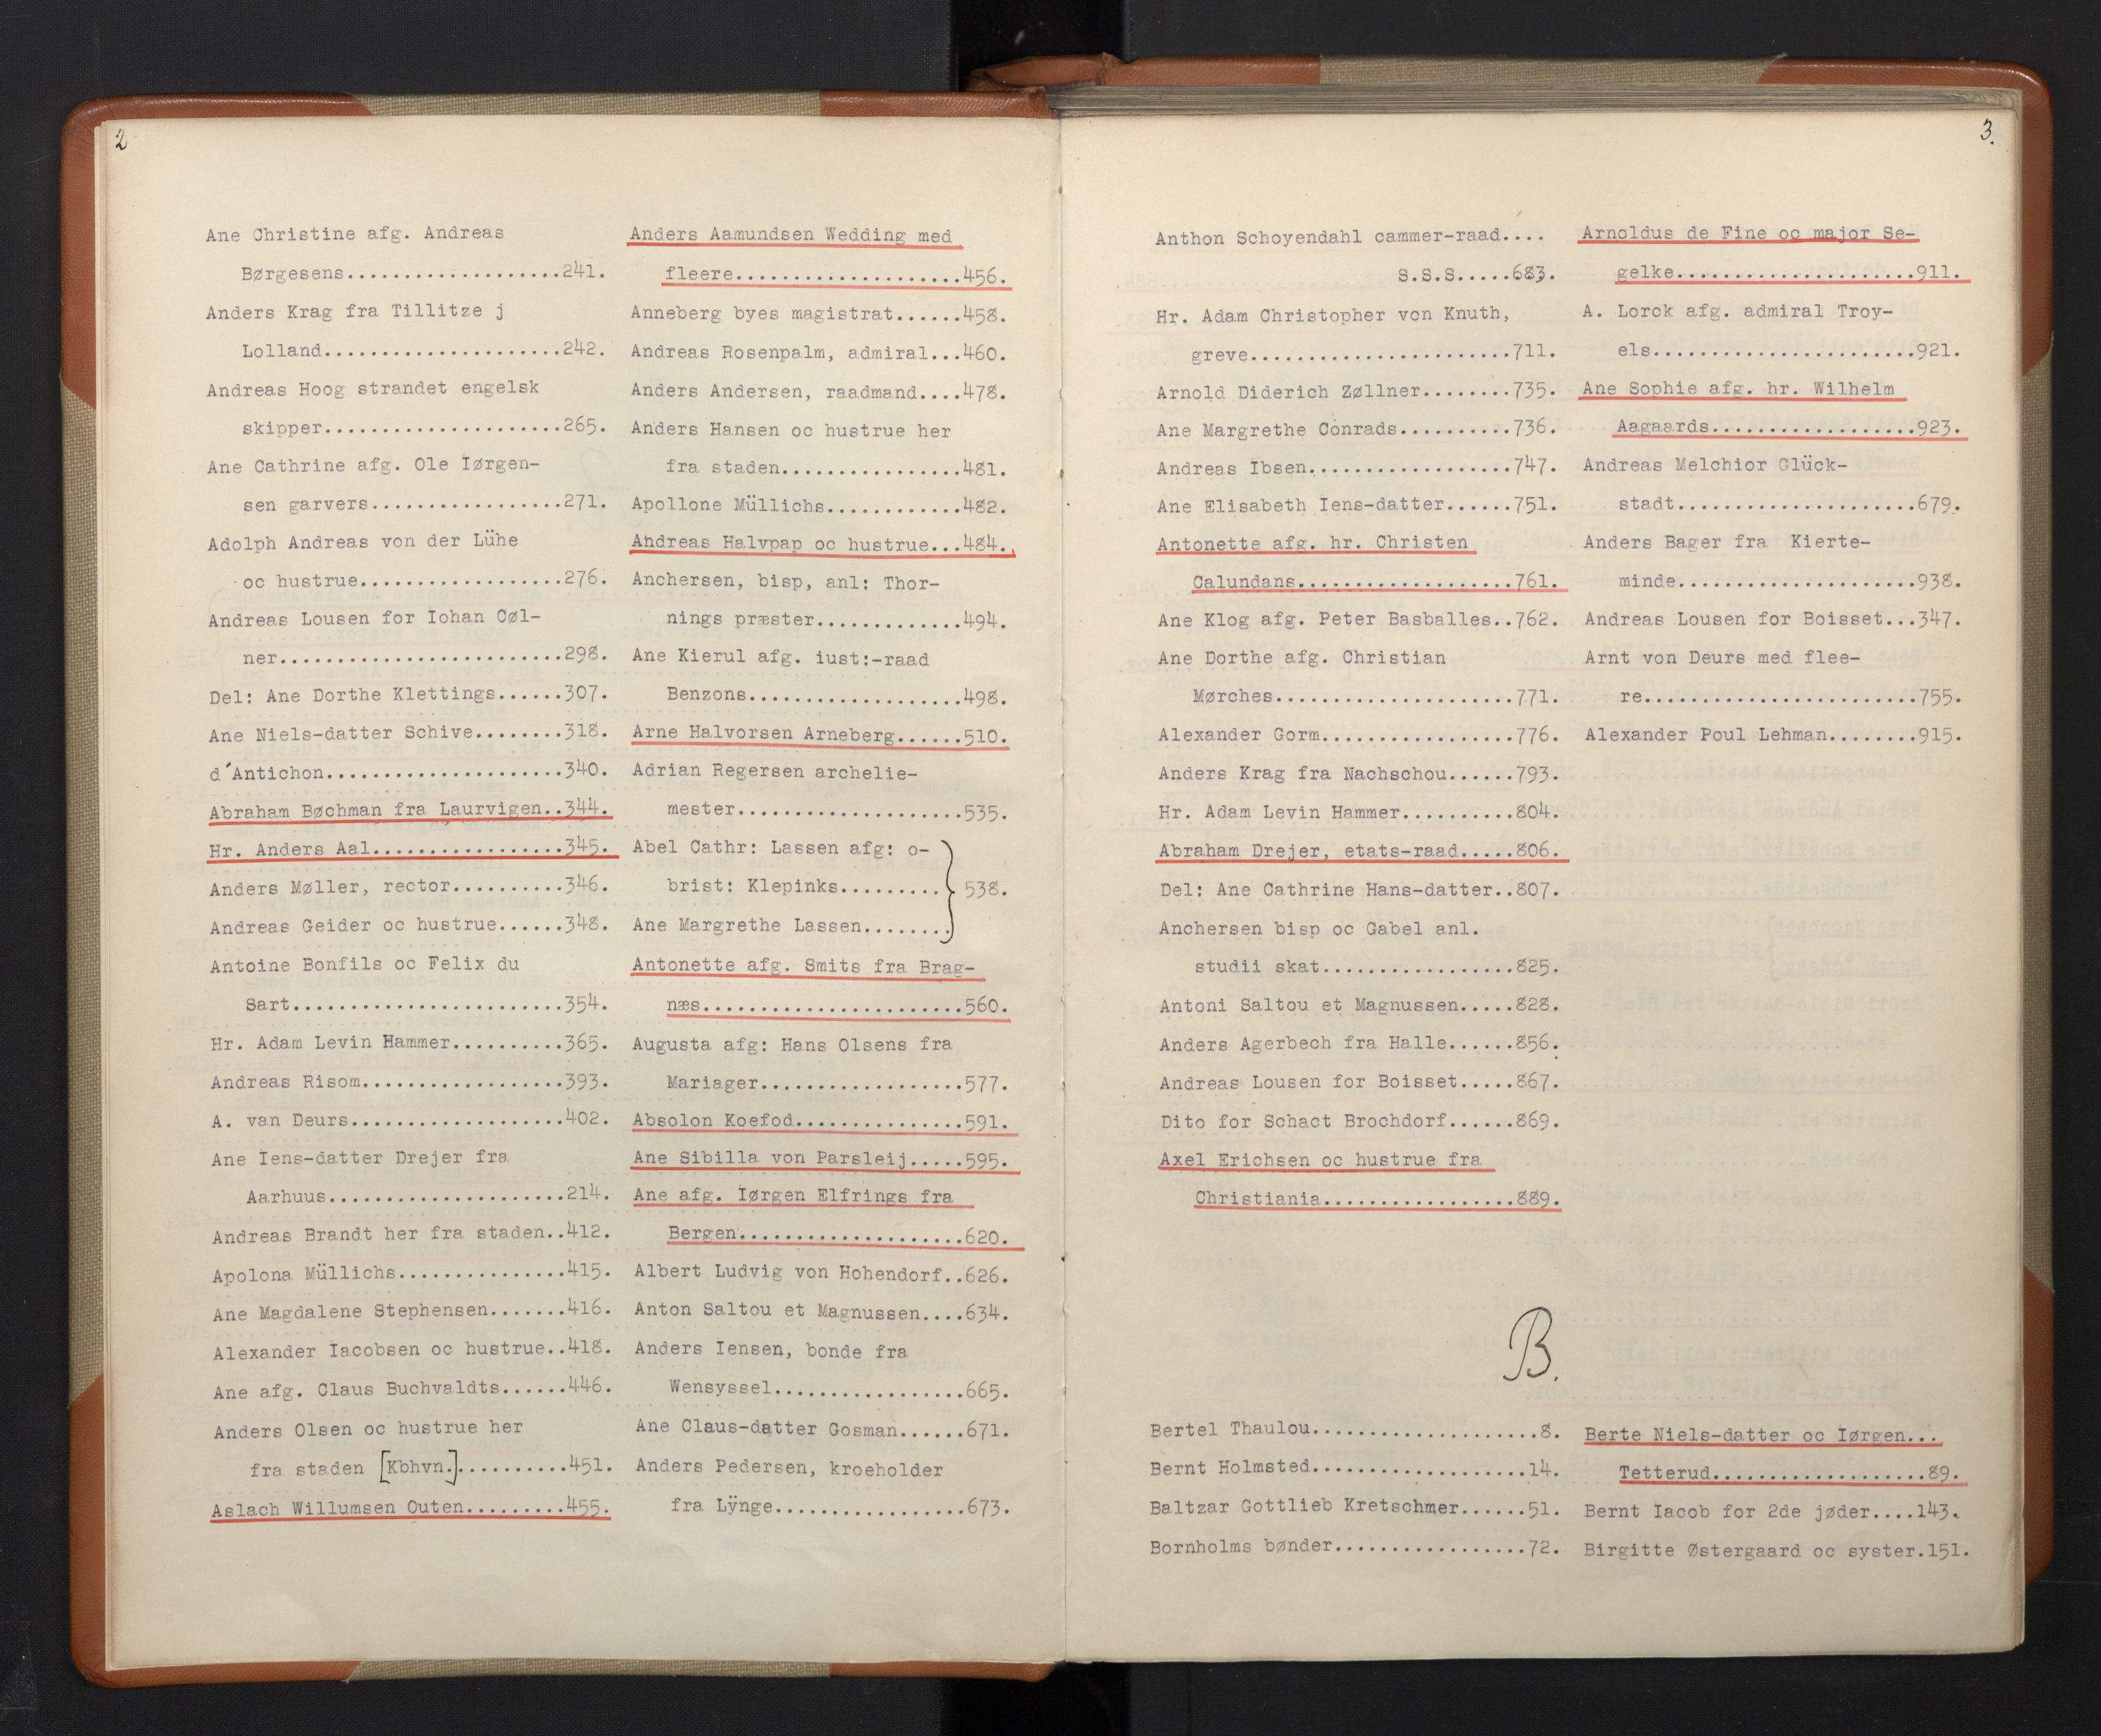 2
Ane Christine afg. Andreas
Børgesens...................241.
Anders Krag fra Tillitze j
Lolland.....................242.
Andreas Hoog strandet engelsk
skipper.....................265.
Ane Cathrine afg. Ole Iørgen-
sen garvers.................271.
Adolph Andreas von der Lühe
oc hustrue..................276.
Andreas Lousen for Iohan Cøl-
ner.........................298.
Del: Ane Dorthe Klettings......307.
Ane Niels-datter Schive........318.
d´Antichon.....................340.
Abraham Bøchman fra Laurvigen..344.
Hr. Anders Aal.................345.
Anders Møller, rector..........346.
Andreas Geider oc hustrue......348.
Antoine Bonfils oc Felix du
Sart........................354.
Hr. Adam Levin Hammer..........365.
Andreas Risom..................393.
A. van Deurs...................402.
Ane Iens-datter Drejer fra
Aarhuus.....................214.
Andreas Brandt her fra staden..412.
Apolona Müllichs...............415.
Ane Magdalene Stephensen.......416.
Alexander Iacobsen oc hustrue..418.
Ane afg. Claus Buchvaldts......446.
Anders Olsen oc hustrue her
fra staden [Kbhvn.]..........451.
Aslach Willumsen Outen.........455.
Anders Aamundsen Wedding med
fleere....................456.
Anneberg byes magistrat......458.
Andreas Rosenpalm, admiral...460.
Anders Andersen, raadmand....478.
Anders Hansen oc hustrue her
fra staden................481.
Apollone Müllichs............482.
Andreas Halvpap oc hustrue...484.
Anchersen, bisp, anl: Thor-
nings præster.............494.
Ane Kierul afg. iust:-raad
Benzons...................498.
Arne Halvorsen Arneberg......510.
Adrian Regersen archelie-
mester....................535.
Abel Cathr: Lassen afg: o-
brist: Klepinks.........} 538.
Ane Margrethe Lassen........
Antonette afg. Smits fra Brag-
næs.......................560.
Augusta afg: Hans Olsens fra
Mariager..................577.
Absolon Koefod...............591.
Ane Sibilla von Parsleij.....595.
Ane afg. Iørgen Elfrings fra
Bergen....................620.
Albert Ludvig von Hohendorf..626.
Anton Saltou et Magnussen....634.
Anders Iensen, bonde fra
Wensyssel.................665.
Ane Claus-datter Gosman......671.
Anders Pedersen, kroeholder
fra Lÿnge.................673.
3.
Anthon Schoyendahl cammer-raad....
S.S.S.....683.
Hr. Adam Christopher von Knuth,
greve.......................711.
Arnold Diderich Zøllner........735.
Ane Margrethe Conrads..........736.
Andreas Ibsen..................747.
Ane Elisabeth Iens-datter......751.
Antonette afg. hr. Christen
Calundans...................761.
Ane Klog afg. Peter Basballes..762.
Ane Dorthe afg. Christian
Mørches.....................771.
Alexander Gorm.................776.
Anders Krag fra Nachschou......793.
Hr. Adam Levin Hammer..........804.
Abraham Drejer, etats-raad.....806.
Del: Ane Cathrine Hans-datter..807.
Anchersen bisp oc Gabel anl.
studii skat.................825.
Antoni Saltou et Magnussen.....828.
Anders Agerbech fra Halle......856.
Andreas Lousen for Boisset.....867.
Dito for Schact Brochdorf......869.
Axel Erichsen oc hustrue fra
Christiania.................889.
Arnoldus de Fine oc major Se-
gelke.....................911.
A. Lorck afg. admiral Troy-
els.......................921.
Ane Sophie afg. hr. Wilhelm
Aagaards..................923.
Andreas Melchior Glück-
stadt.....................679.
Anders Bager fra Kierte-
minde.....................938.
Andreas Lousen for Boisset...347.
Arnt von Deurs med flee-
re........................755.
Alexander Poul Lehman........915.
B.
Bertel Thaulou....................8.
Bernt Holmsted...................14.
Baltzar Gottlieb Kretschmer......51.
Bornholms bønder.................72.
Berte Niels-datter oc Iørgen...
Tetterud...................89.
Bernt Iacob for 2de jøder....143.
Birgitte Østergaard oc syster.151.